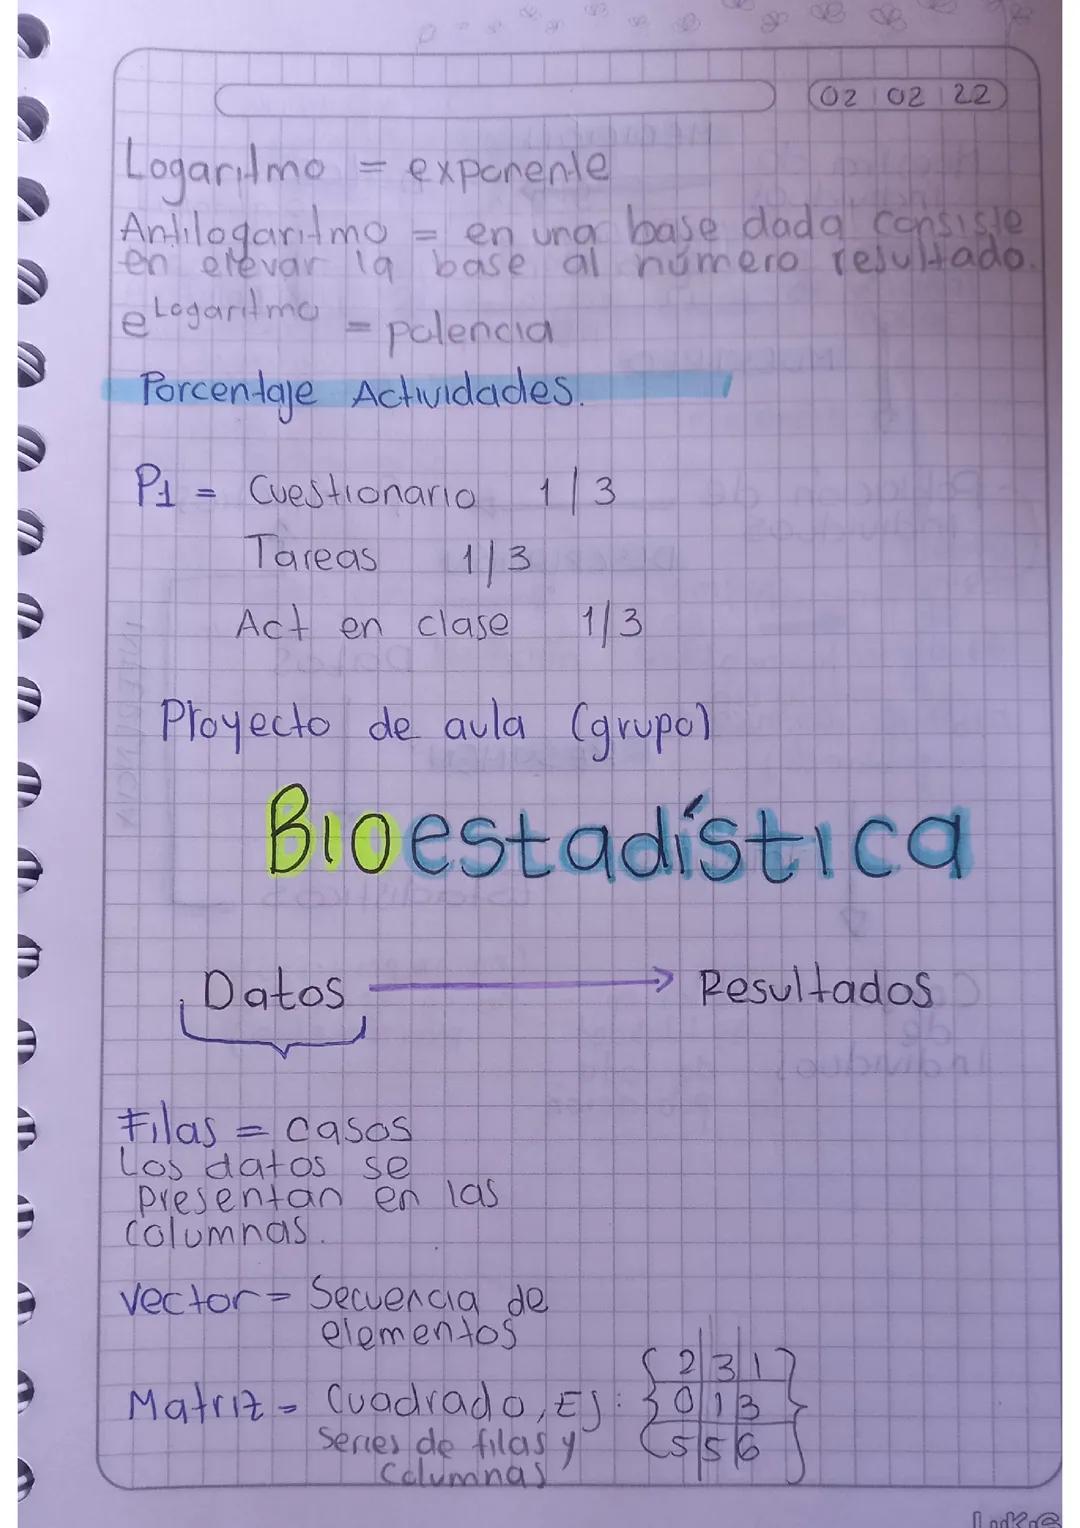 02 02 22
Logaritmo = exponente
Antilogaritmo = en una base dada consiste
en elevar la base al número resultado.
e^Logaritmo = potencia
Porcentaje Actividades.
P1 = Cuestionario 1/3
Tareas 1/3
Act en clase 1/3
Proyecto de aula (grupal)
Bioestadística
Datos → Resultados
Filas = casos
Los datos se
presentan en las
columnas.
Vector = Secuencia de
elementos
Matriz = Cuadrado, Ej:
Series de filas y
columnas
2 3 1
0 1 3
5 5 6